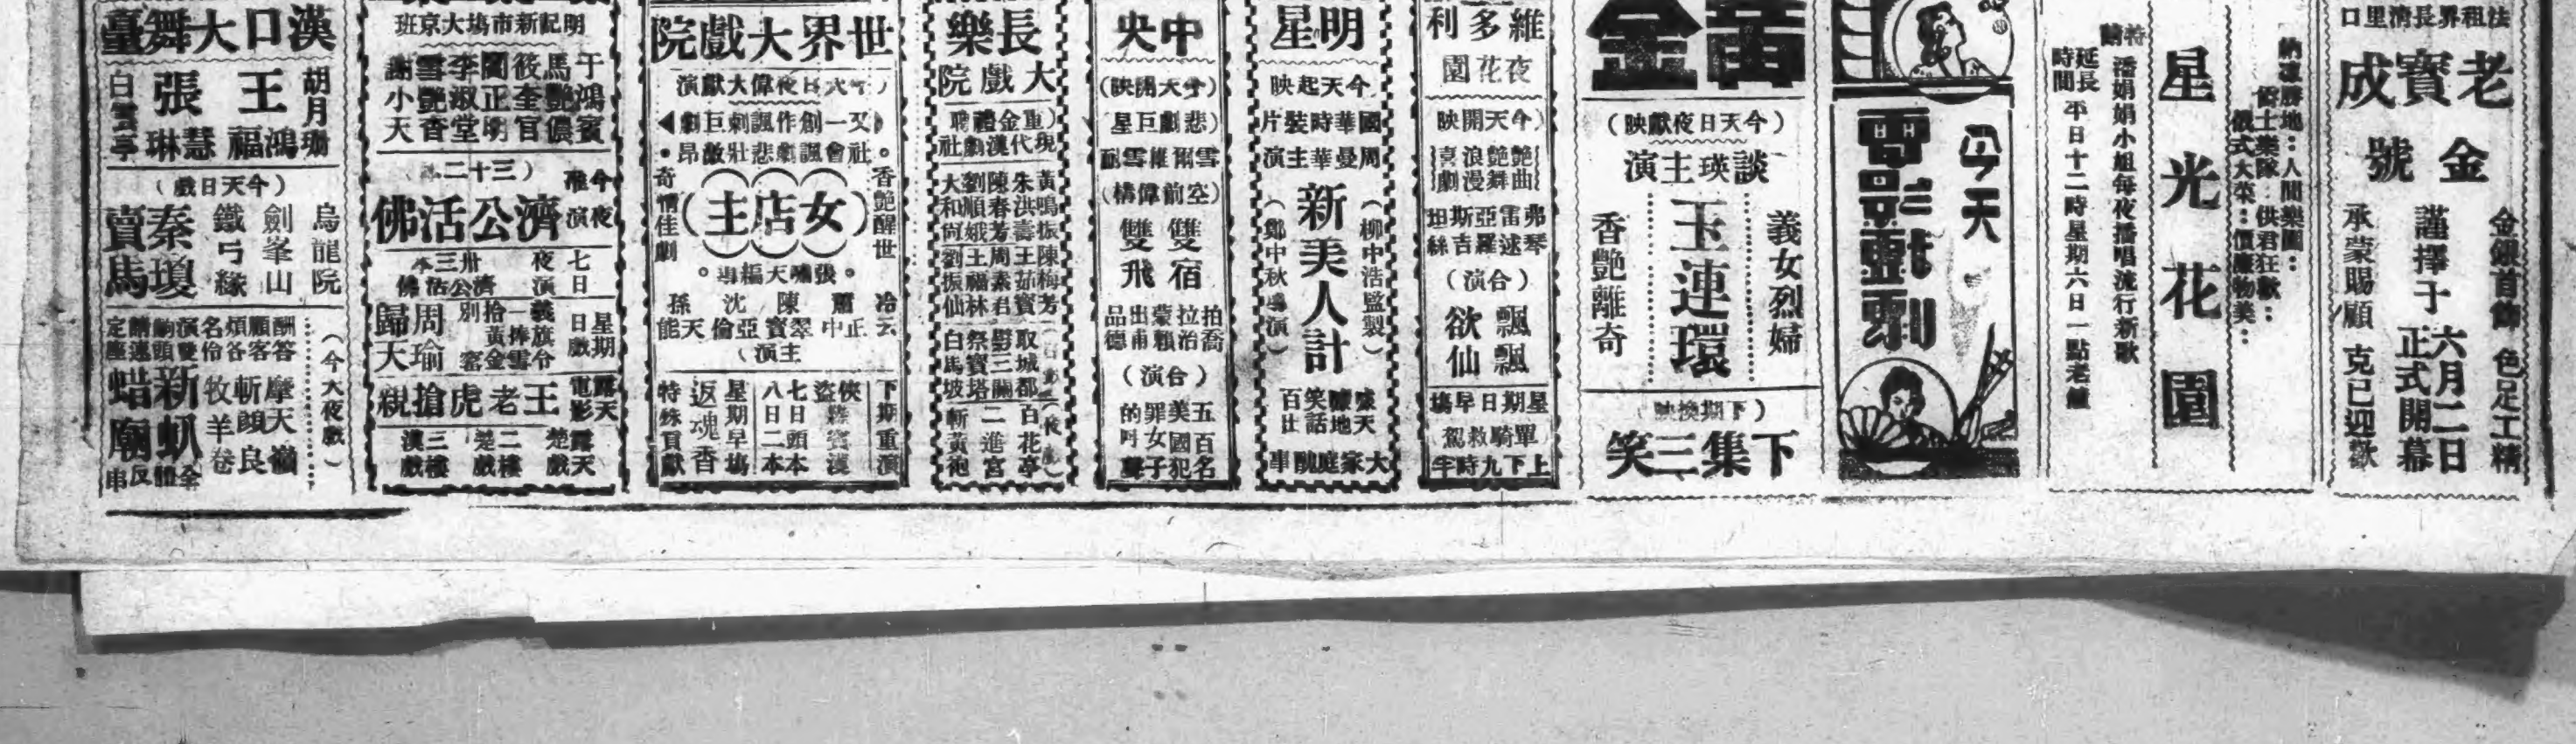 法租界長清里口
老寶成
金號
金銀首飾 色足工精
謹擇于六月二日正式開幕
承蒙賜顧 克已迎歡
納涼勝地：人間樂園：
爵士樂隊：供君狂歡：
俄式大菜：價廉物美：
星光花園
特請 潘娟娟小姐每夜播唱流行新歌
延長時間 平日十二時星期六日一點老鐘
今天
電影戲劇
黃金
（今天日夜獻映）
談瑛主演
義女烈婦
玉連環
香艷離奇
（下期換映）
下集三笑
維多利
夜花園
（今天開映）
艷曲艷舞浪漫喜劇
弗琴雷逑亞羅斯吉坦絲
（合演）
飄飄欲仙
星期日早場
單騎救駕
上下九時半
明星
今天起映
國華時裝片
周曼華主演
（柳中浩監製）
新美人計
（鄭中秋導演）
嚎天嚎地
笑話百出
大家庭醜事
中央
（今天開映）
（悲劇巨星）
雪爾維雪耐
（空前偉構）
雙宿雙飛
拍喬拉治蒙賴出甫品德
（合演）
五百名美國女犯的叫聲
長樂
大戲院
（重金禮聘
現代漢劇社
黃鳴振 陳梅芳
朱洪壽 王茹寶
陳春芳 周素君
劉順娥 王福林
大和尚 劉振仙
取城都
祭寶塔
白馬坡
（夜戲）
百花亭
二進宮
斬黃袍
世界大戲院
（今天日夜偉大獻演
又一創作諷刺巨劇
社會諷劇悲壯激昂
香艷醒世
（女店主）
奇情佳劇
張嘯天編導
冷云 蕭正中 陳翠寶 沈亞倫 孫天能
主演
下期重演
俠盜
七日頭本
八日二本
星期早場
返魂香
特殊貢獻
明記新市場大京班
于鴻賓
馬艷儂
後奎官
關正明
李淑堂
雪艷香
謝小天
今夜准演
（三十二本）
濟公活佛
七日夜演
卅三本濟公活佛
星期日戲
義旗令
一捧雪
拾黃金
別窰
周瑜歸天
露天電影
王老虎搶親
露天楚戲
二樓楚戲
三樓漢戲
漢口大舞臺
胡月珊
王鴻福
張慧琳
白雲亭
（今天日戲）
烏龍院
劍峯山
鐵弓緣
秦瓊賣馬
（今天夜戲）
酬答顧客煩各名伶演雙齣頭請速定座
摩天嶺
斬顏良
牧羊卷
新蚆蜡廟
全體反串